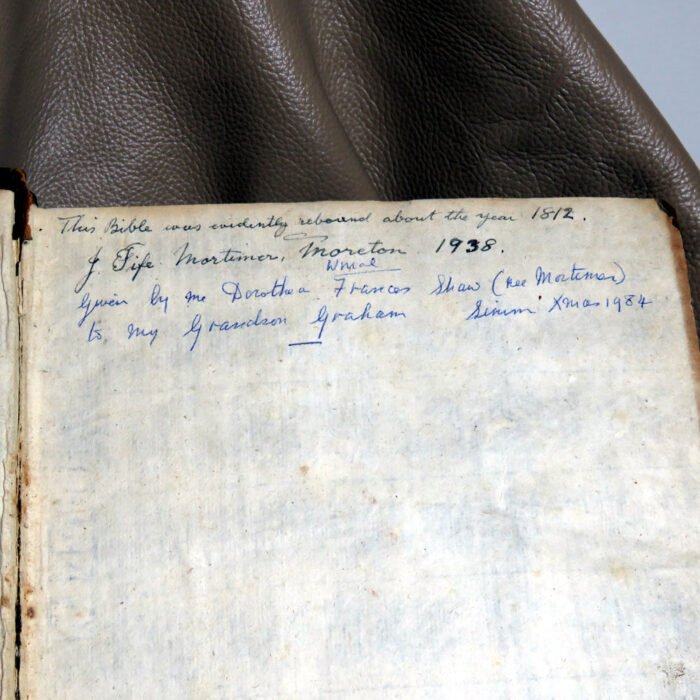 This Bible was evidently rebound about the year 1812.
J. Fife Mortimer, Moreton 1938.
Wirral
Given by me Dorothea Frances Shaw (nee Mortimer)
to my Grandson Graham Simm Xmas 1984